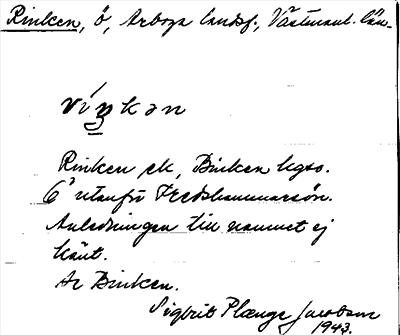 Rinken, ö, Arboga landsf., Västmanl. län.
Rinken ek, Binken hgso.
Ö utanför Fredshammarsön.
Anledningen till namnet ej
känt.
Se Binken.
Sigbrit Plænge Jacobson
1943.